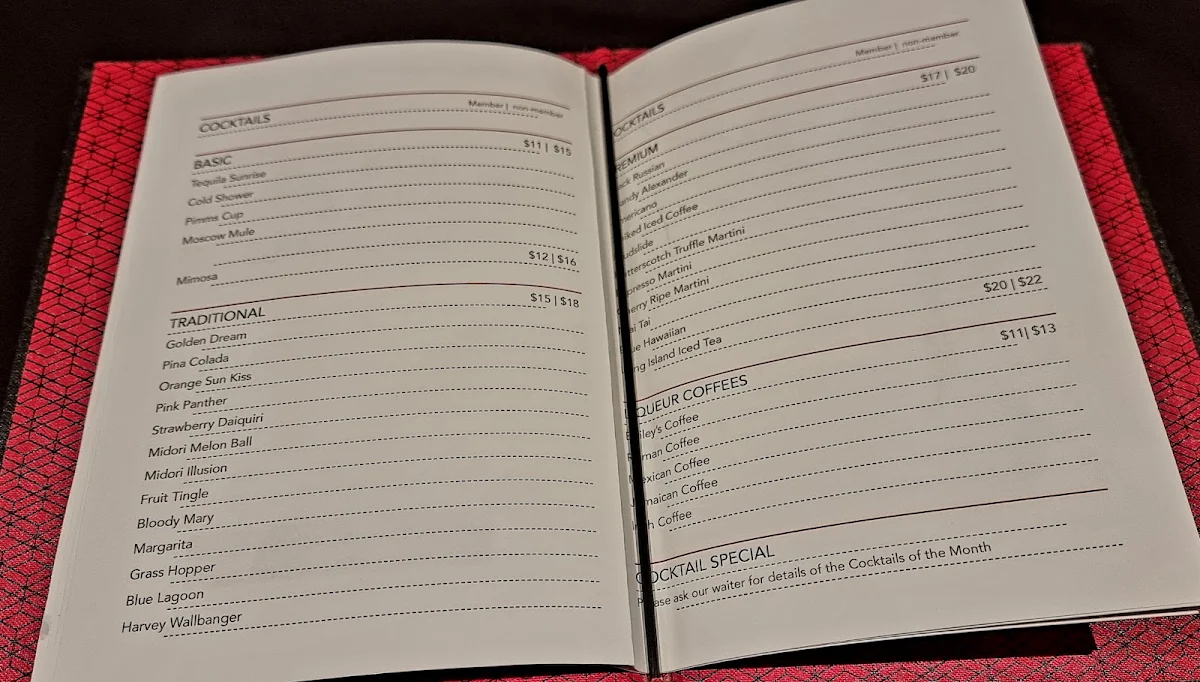 COCKTAILS Member | non-member
BASIC $11 | $15
Tequila Sunrise
Cold Shower
Pimms Cup
Moscow Mule
Mimosa $12 | $16
TRADITIONAL $15 | $18
Golden Dream
Pina Colada
Orange Sun Kiss
Pink Panther
Strawberry Daiquiri
Midori Melon Ball
Midori Illusion
Fruit Tingle
Bloody Mary
Margarita
Grass Hopper
Blue Lagoon
Harvey Wallbanger
OCKTAILS Member | non-member
REMIUM $17 | $20
ck Russian
andy Alexander
mericano
iked Iced Coffee
udslide
tterscotch Truffle Martini
presso Martini
erry Ripe Martini
ai Tai
ue Hawaiian
ng Island Iced Tea $20 | $22
QUEUR COFFEES $11 | $13
iley's Coffee
man Coffee
exican Coffee
maican Coffee
h Coffee
COCKTAIL SPECIAL
ase ask our waiter for details of the Cocktails of the Month